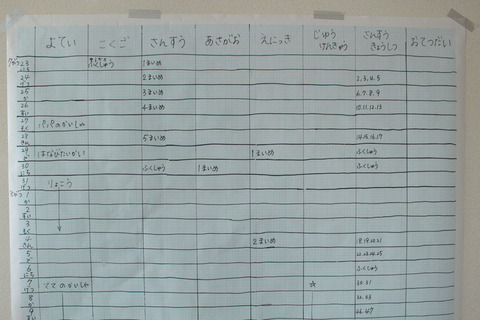 よてい こくご さんすう あさがお えにっき じゆう さんすう おてつだい
けんきゅう きょうしつ
23 ふくしゅう 1まいめ
24 2まいめ 2,3,4,5
25 3まいめ 6,7,8,9
26 4まいめ 10,11,12,13
27 パパのかいしゃ
28 5まいめ 14,15,16,17
29 はなびたいかい 1まいめ ふくしゅう
30 ふくしゅう 1まいめ ふくしゅう
31 りょこう
1
2
3
4 2まいめ 18,19,20,21
5 22,23,24,25
6 ふくしゅう
7 ☆ 30,31
8
9